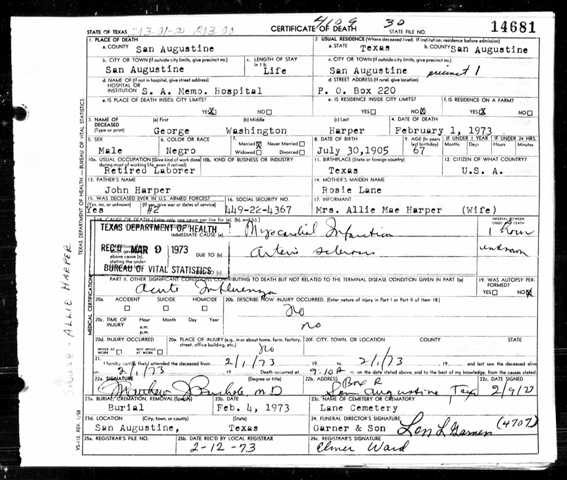 4109 30 14681
STATE OF TEXAS CERTIFICATE OF DEATH STATE FILE NO.
1. PLACE OF DEATH 2. USUAL RESIDENCE (Where deceased lived. If institution: residence before admission)
a. COUNTY San Augustine a. STATE Texas b. COUNTY San Augustine
b. CITY OR TOWN (If outside city limits, give precinct no.) c. LENGTH OF STAY c. CITY OR TOWN (If outside city limits, give precinct no.)
San Augustine Life San Augustine precinct 1
d. NAME OF (If not in hospital, give street address) d. STREET ADDRESS (If rural, give location)
HOSPITAL OR INSTITUTION S. A. Memo. Hospital P. O. Box 220
e. IS PLACE OF DEATH INSIDE CITY LIMITS? e. IS RESIDENCE INSIDE CITY LIMITS? f. IS RESIDENCE ON A FARM?
YES X NO YES X NO YES NO X
3. NAME OF DECEASED (a) First (b) Middle (c) Last 4. DATE OF DEATH
(Type or print) George Washington Harper February 1, 1973
5. SEX 6. COLOR OR RACE 7. Married X Never Married Widowed Divorced 8. DATE OF BIRTH 9. AGE IF UNDER 1 YEAR IF UNDER 24 HRS.
Male Negro July 30,1905 67
10a. USUAL OCCUPATION (Give kind of work done during most of working life, even if retired) 10b. KIND OF BUSINESS OR INDUSTRY 11. BIRTHPLACE (State or foreign country) 12. CITIZEN OF WHAT COUNTRY?
Retired Laborer Texas U.S.A.
13. FATHER'S NAME 14. MOTHER'S MAIDEN NAME
John Harper Rosie Lane
15. WAS DECEASED EVER IN U.S. ARMED FORCES? 16. SOCIAL SECURITY NO. 17. INFORMANT
Yes #2 449-22-4367 Mrs. Allie Mae Harper (Wife)
TEXAS DEPARTMENT OF HEALTH
IMMEDIATE CAUSE (a) Myocardial Infarction 1 hour
REC'D MAR 9 1973 DUE TO (b) Arterio sclerosis unknown
BUREAU OF VITAL STATISTICS
PART II. OTHER SIGNIFICANT CONDITIONS CONTRIBUTING TO DEATH BUT NOT RELATED TO THE TERMINAL DISEASE CONDITION GIVEN IN PART I(a) 19. WAS AUTOPSY PERFORMED?
Acute Influenza YES NO X
20a. ACCIDENT SUICIDE HOMICIDE 20b. DESCRIBE HOW INJURY OCCURRED. (Enter nature of injury in Part I or Part II of item 18)
No
20c. TIME OF INJURY Hour Month Day Year a.m. p.m.
no
20d. INJURY OCCURRED 20e. PLACE OF INJURY (e.g., in or about home, farm, factory, street, office building, etc.) 20f. CITY, TOWN, OR LOCATION COUNTY STATE
no
21. I hereby certify that I attended the deceased from 2/1/73 to 2/1/73 and last saw the deceased alive
on 2/1/73 Death occurred at on the date stated above, and to the best of my knowledge, from the causes stated.
22a. SIGNATURE (Degree or title) 22b. ADDRESS 22c. DATE SIGNED
M.D. San Augustine Tex
23a. BURIAL, CREMATION, REMOVAL 23b. DATE 23c. NAME OF CEMETERY OR CREMATORY
Burial Feb. 4, 1973 Lane Cemetery
23d. LOCATION (City, town, or county) (State) 24. FUNERAL DIRECTOR'S SIGNATURE
San Augustine, Texas Garner & Son Len L Garner (4707)
25a. REGISTRAR'S FILE NO. 25b. DATE REC'D BY LOCAL REGISTRAR 25c. REGISTRAR'S SIGNATURE
2-12-73 Elmer Ward
TEXAS DEPARTMENT OF HEALTH — BUREAU OF VITAL STATISTICS
MEDICAL CERTIFICATION
ALLIE HARPER